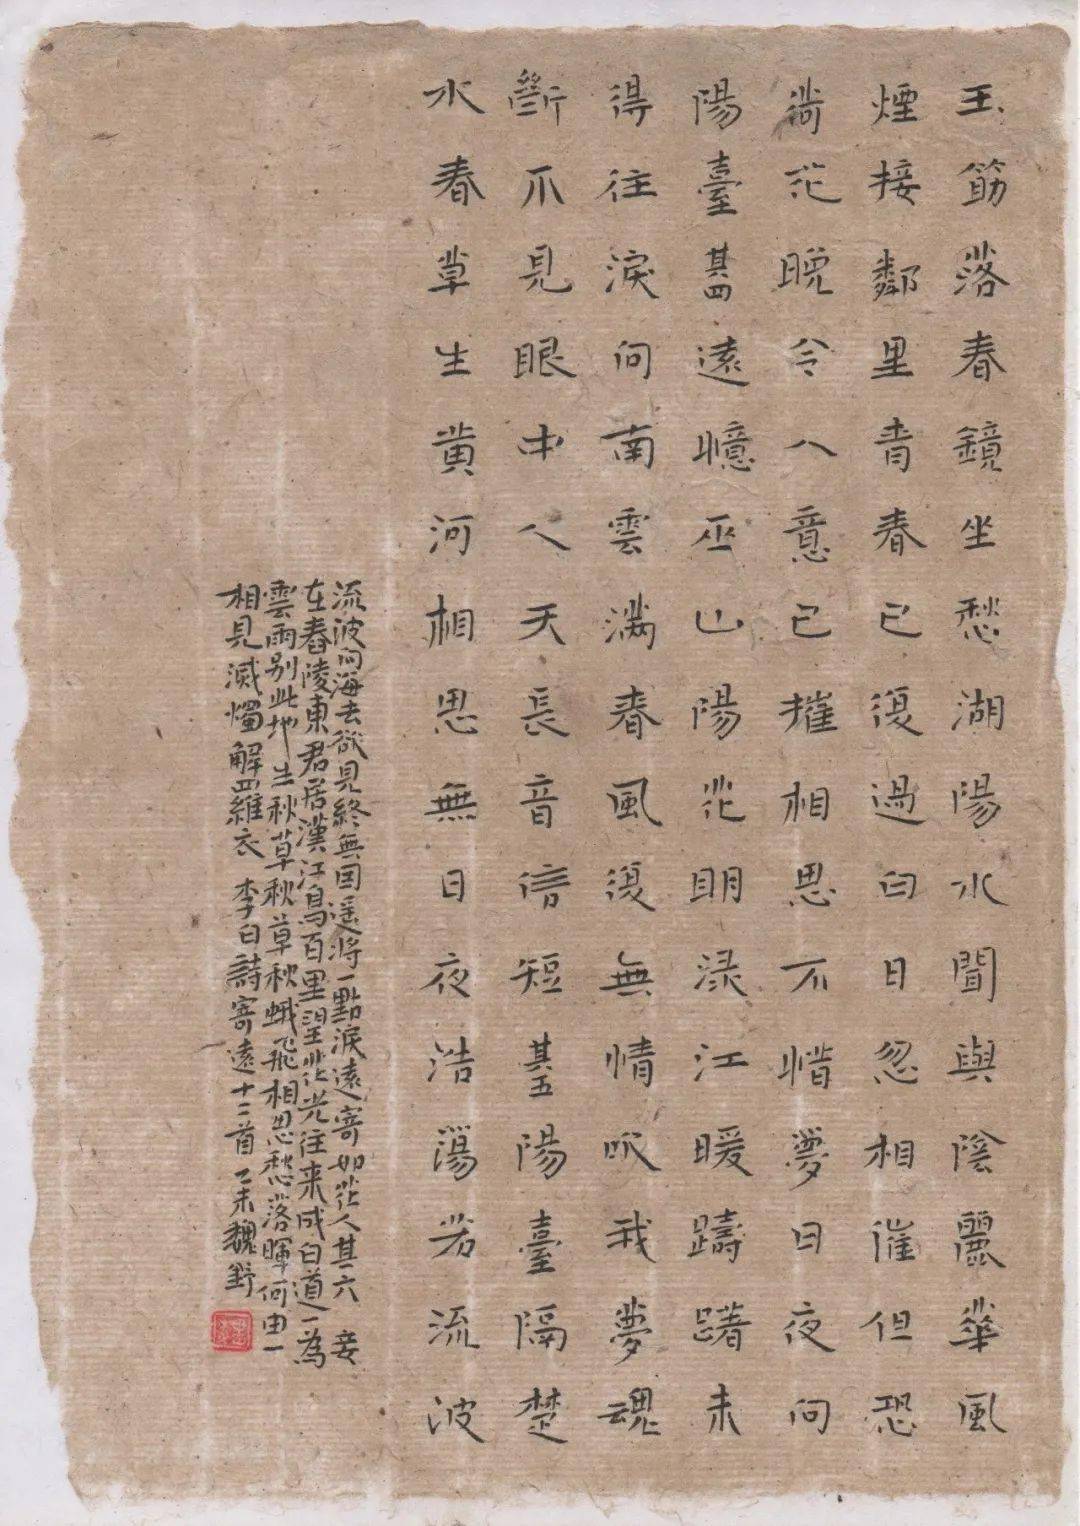 玉筋落春鏡坐愁湖陽水聞與陰麗華風
煙接鄰里青春已復過白日忽相催但恐
荷花晚令人意已摧相思不惜夢日夜向
陽臺其四遠憶巫山陽花明淥江暖躊躇未
得往淚向南雲滿春風復無情吹我夢魂
斷不見眼中人天長音信短其五陽臺隔楚
水春草生黃河相思無日夜浩蕩若流波
流波向海去欲見終無因遥將一點淚遠寄如花人其六 妾
在舂陵東君居漢江島百里望花光往来成白道一為
雲雨别此地生秋草秋草秋蛾飛相思愁落暉何由一
相見滅燭解羅衣 李白詩寄遠十二首 乙未魏野